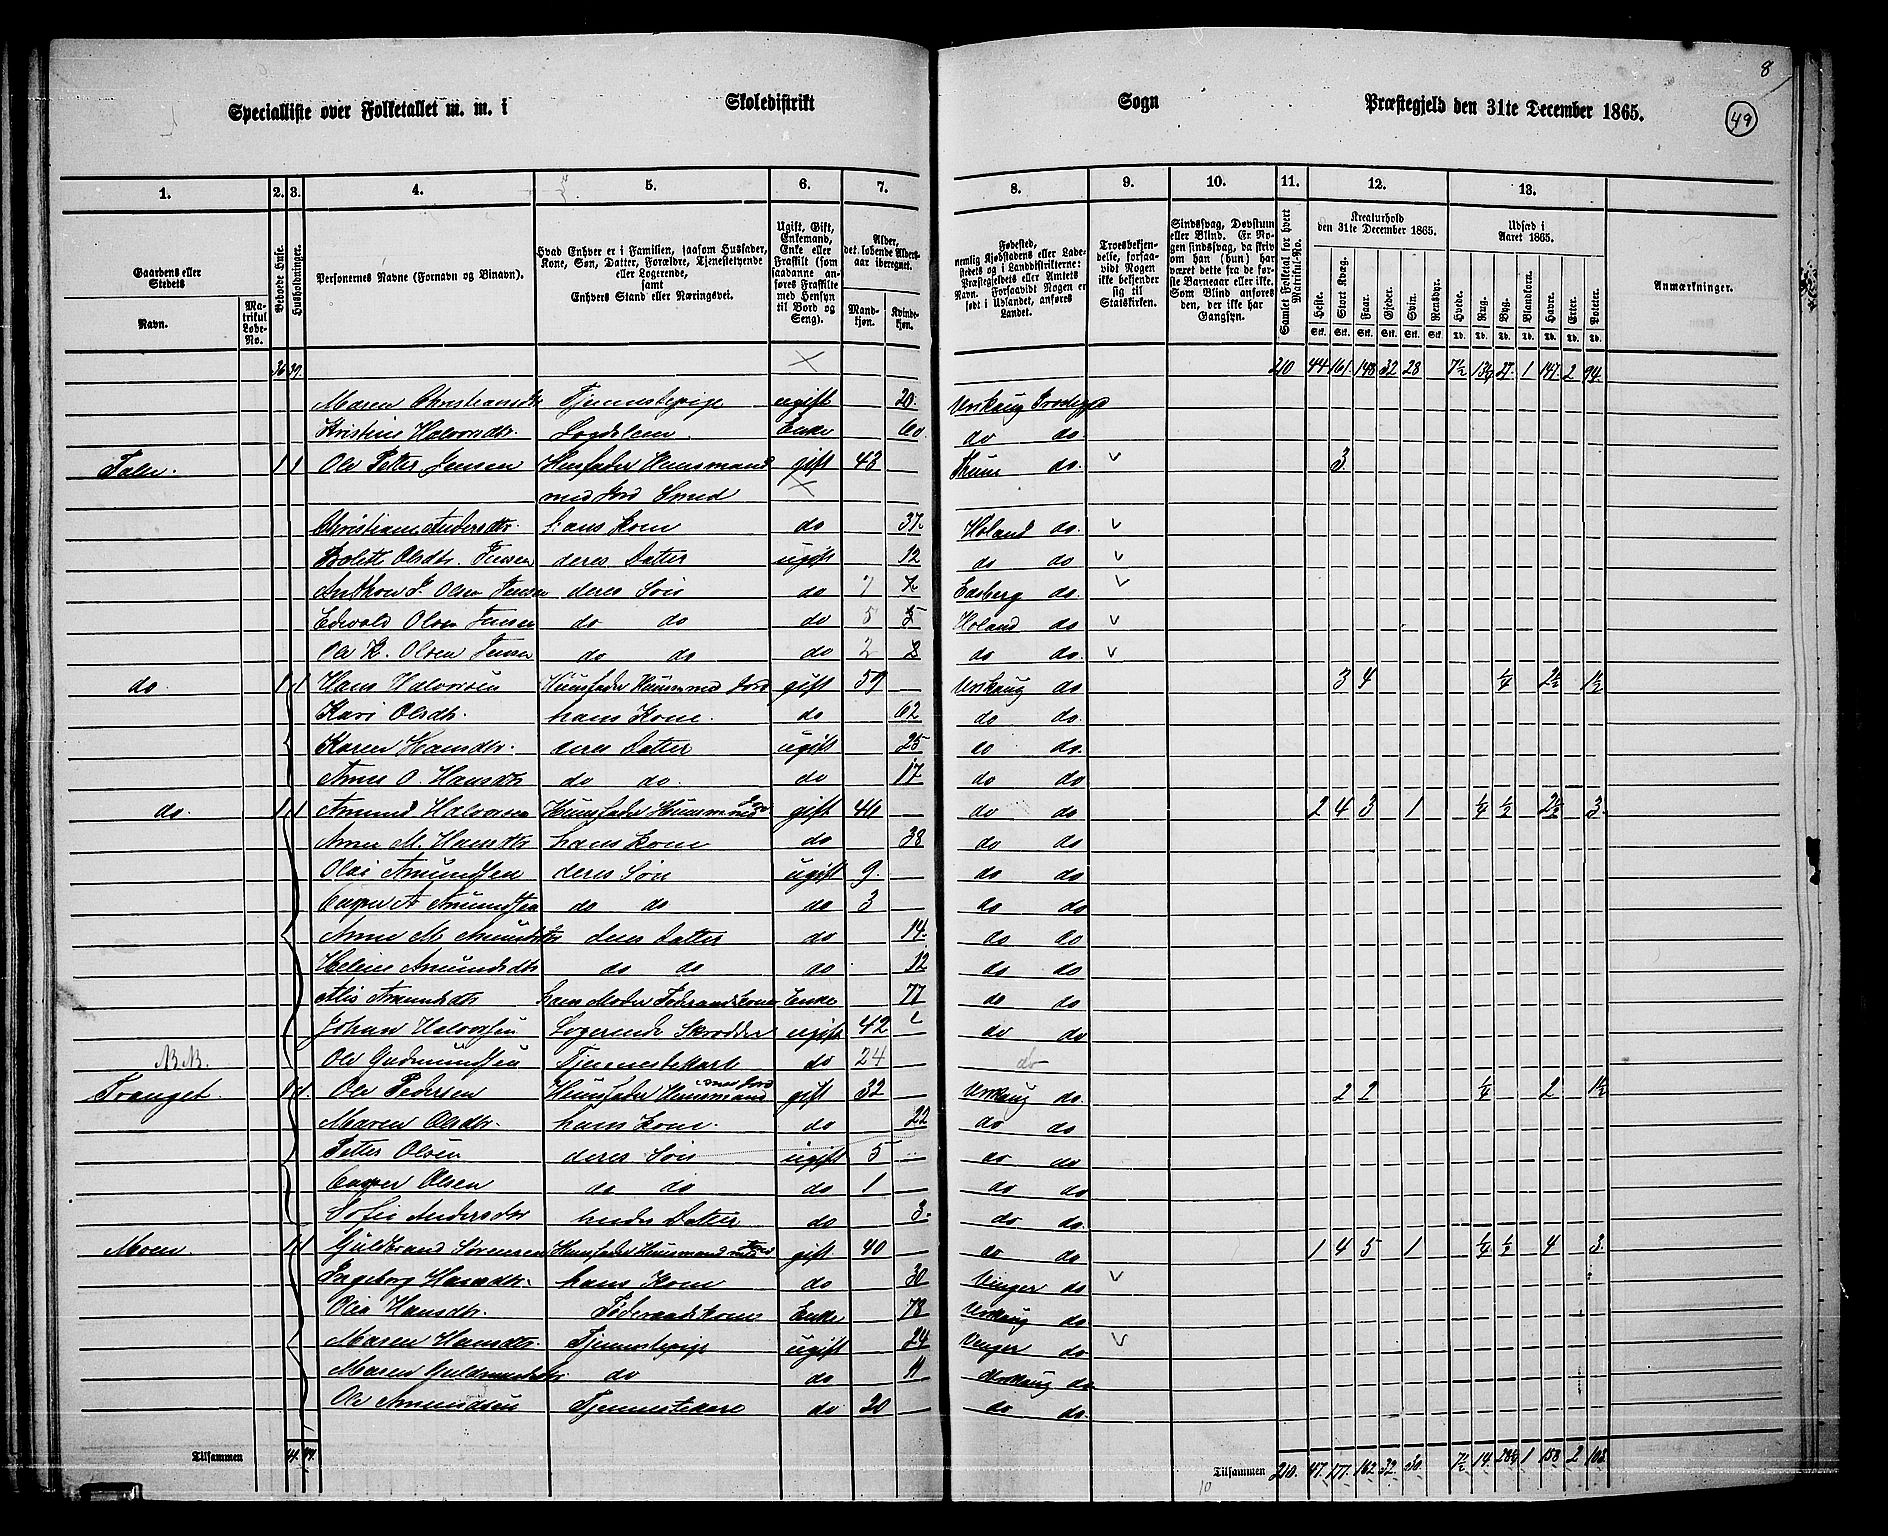 8
49
Specialliste over Folketallet m. m. i Skoledistrikt Sogn Præstegjeld den 31te December 1865.
1. 2. 3. 4. 5. 6. 7. 8. 9. 10. 11. 12. 13.
Gaardens eller Stedets Navn.
Matrikul Løbe-No.
Beboede Huse.
Husholdninger.
Personernes Navne (Fornavn og Binavn).
Hvad Enhver er i Familien, saasom Husfader, Kone, Søn, Datter, Forældre, Tjenestetyende eller Logerende, samt Enhvers Stand eller Næringsvei.
Ugift, Gift, Enkemand, Enke eller Fraskilt (som saadanne anføres Fraskilte med Hensyn til Bord og Seng).
Alder, det løbende Alders-aar iberegnet.
Mandkjøn.
Kvindekjøn.
Fødested, nemlig Kjøbstadens eller Ladestedets og i Landdistrikterne: Præstegjeldets eller Amtets Navn. Forsaavidt Nogen er født i Udlandet, anføres Landet.
Troesbekjendelse, forsaavidt Nogen ikke bekjender sig til Statskirken.
Sindssvag, Døvstum eller Blind. Er Nogen sindssvag, da skrives om han (hun) har været dette fra de første Barneaar eller ikke. Som Blind anføres den, der ikke har Gangsyn.
Samlet Folketal for hvert Matrikul-No.
Kreaturhold den 31te December 1865.
Heste. Stort Kvæg. Faar. Gjeder. Svin. Rensdyr.
Udsæd i Aaret 1865.
Hvede. Rug. Byg. Blandkorn. Havre. Erter. Poteter.
Anmærkninger.
36 39 210 44 161 148 32 28 7½ 13¾ 27 1 147 2 94
Maren Christiansdtr Tjenestepige ugift 20 Urskoug
Kristine Halvorsdtr. Enke 60 do do
1 1 Ole Petter Jensen Husfader Huusmand gift 48 do. 3
med Jord Smed
Christiane Andersdtr. hans Kone do 37 Høland do.
Olsdtr. Jensen deres Datter ugift 12 do do
Olsen Jensen deres Søn do 7 7 Eidsberg do.
Edvald Olsen Jensen do do do 5 5 Høland do
Ole K. Olsen Jensen do do do 2 2 do do.
do 1 1 Hans Halvorsen Huusfader Huusm med Jord gift 59 Urskoug do 3 4 ¼ 2½ 1½
Kari Olsdtr. hans Kone. do 62 do do.
Karen Hansdtr. deres Datter ugift 25 do do.
Anne O. Hansdtr do do. do 17 do do
do. 1 1 Amund Halvorsen Huusfader Huusm med Jord gift 40 do do 2 4 3 1 ¼ ½ 2½ 3
Anne M. Hansdtr hans Kone do 38 do do
Olai Amundsen deres Søn ugift 9. do do
Casper A Amundsen do do do 3 do do
Anne M. Amundsdtr deres Datter do 14. do do
Helene Amundsdtr do do do 12 do do
Alis Amundsdtr hans Moder Føderaadskone Enke 77 do do
Johan Halvorsen Logerende Skrædder ugift 42 do do
Ole Gudmundsen Tjenestekarl do 24 do
Tranget. 1 1 Ole Pedersen Huusfader Huusmand med Jord gift 32 Urskoug do 2 2 ¼ 2 1½
Maren Olsdtr. hans Kone. do 22 do do
Petter Olsen deres Søn ugift 5 do do
Casper Olsen do do do 1 do do
Sofie Andersdtr hendes Datter do 3. do do
Moen 1 1 Guldbrand Sørensen Huusfader Huusmand med Jord gift 40 do do 1 4 5 1 ¼ ½ 4 3
Ingeborg Hansdtr. hans Kone do 30 Vinger do
Hansdtr. Føderaadskone Enke 78 Urskoug do
Maren Hansdtr. Tjenestepige ugift 24 Vinger do
Maren do do 11 Urskoug do
Ole Amundsen Tjenestekarl do 20 do do
Tilsammen 41. 44.
Tilsammen 210. 47. 177. 162 32. 30. 7½ 14. 28¾ 1 158 2 103
10